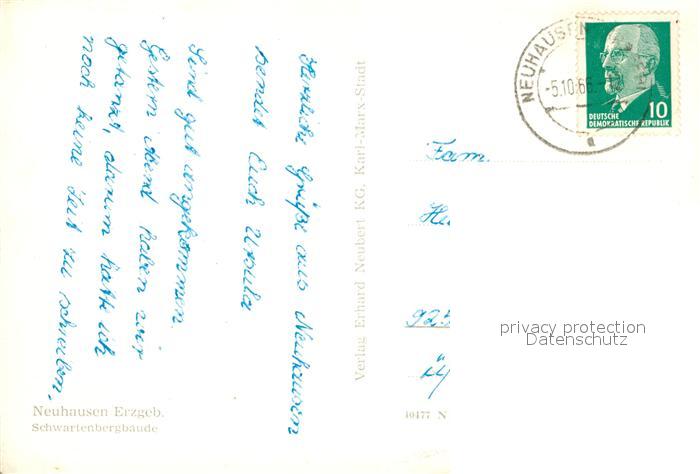 Herzliche Grüße aus Neuhausen
sendet Euch Ursula
Sind gut angekommen.
Gestern Abend haben wir
getanzt, darum hatte ich
noch keine Zeit zu schreiben.
Neuhausen Erzgeb.
Schwartenbergbaude
Verlag Erhard Neubert KG, Karl-Marx-Stadt
10477 N
NEUHAUSEN
-5.10.66.
10
DEUTSCHE
DEMOKRATISCHE REPUBLIK
a
Fam.
He
925
privacy protection
Datenschutz